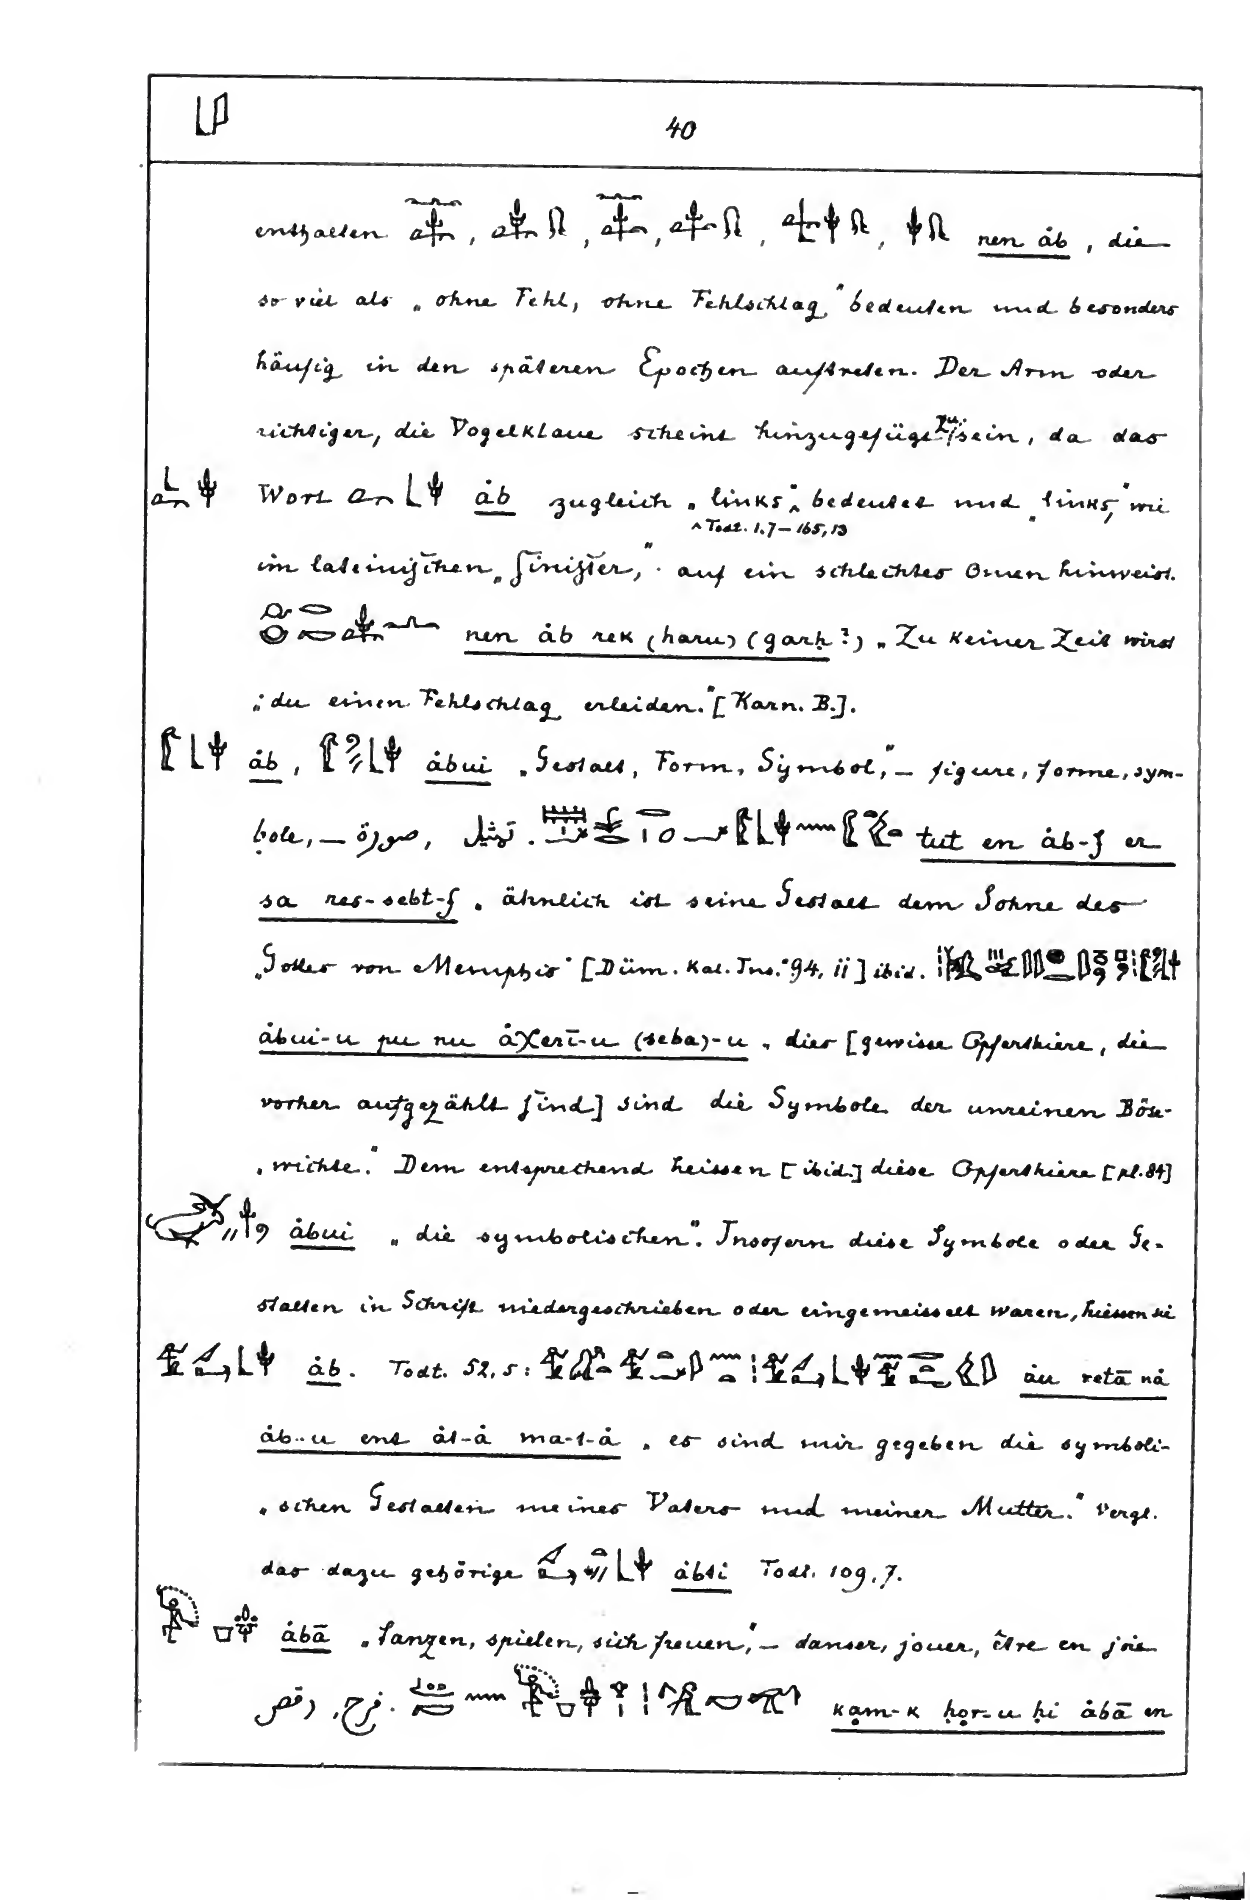 40
enthalten , , , , , nen åb, die
so viel als „ohne Fehl, ohne Fehlschlag" bedeuten und besonders
häufig in den späteren Epochen auftreten. Der Arm oder
richtiger, die Vogelklaue scheint hinzugefügt zu sein, da das
Wort åb zugleich „links" bedeutet und „links," wie
^ Todt. 1.7-165,13
im lateinischen „sinister," auf ein schlechtes Omen hinweist.
nen åb rek (haru) (garḥ?) „Zu keiner Zeit wirst
„du einen Fehlschlag erleiden." [Karn. B.].
åb, åbui „Gestalt, Form, Symbol," – figure, forme, sym-
bole, – صورة, تمثيل. tut en åb-f er
sa res-sebt-f „ähnlich ist seine Gestalt dem Sohne des
„Gottes von Memphis" [Düm. Kal. Ins. 94, ii] ibid.
åbui-u pu nu åχerī-u (seba)-u „dies [gewisse Opferthiere, die
vorher aufgezählt sind] sind die Symbole der unreinen Böse-
„wichte." Dem entsprechend heissen [ibid.] diese Opferthiere [pl. 84]
åbui „die symbolischen". Insofern diese Symbole oder Ge-
stalten in Schrift niedergeschrieben oder eingemeisselt waren, heissen sie
åb. Todt. 52,5: åu retā nå
åb-u ent åt-å ma-t-å „es sind mir gegeben die symboli-
„schen Gestalten meines Vaters und meiner Mutter." Vergl.
das dazu gehörige åbti Todt. 109,7.
åbā „tanzen, spielen, sich freuen," – danser, jouer, être en joie
فرح, رقص. ḥor-u ḥi åbā en